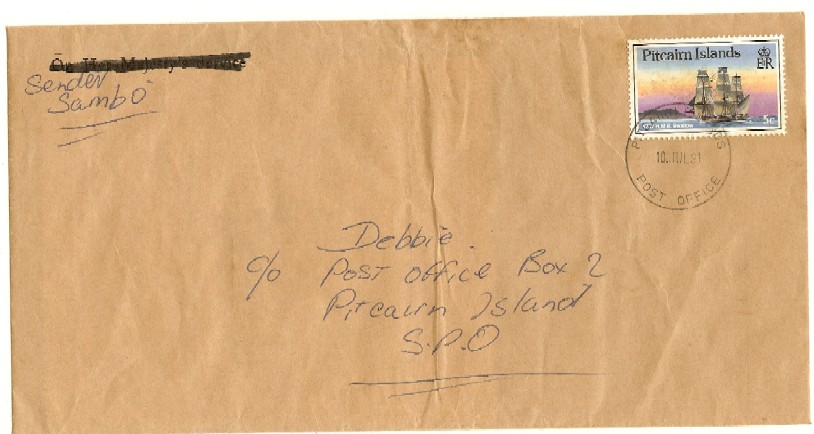 On Her Majesty's Service
Sender
Sambo
Pitcairn Islands
EIIR
5c
10 JUL 91
POST OFFICE
Debbie.
c/o Post Office Box 2
Pitcairn Island
S.P.O